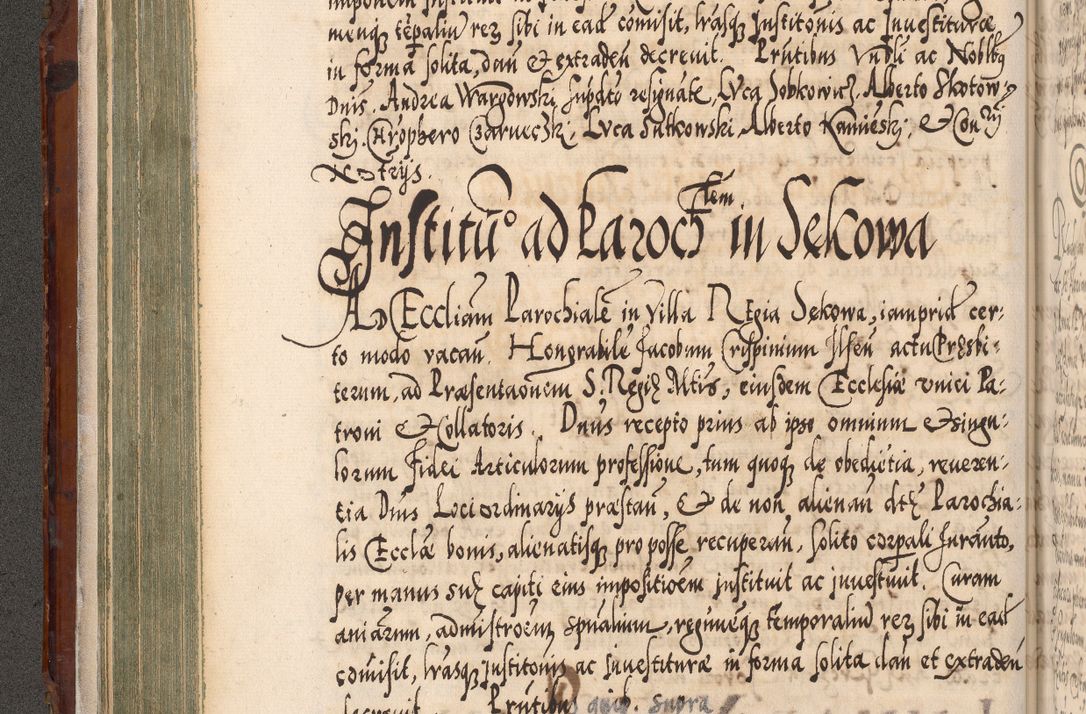 menq͛ tępaliu reʒ sibi in ead comisit, lrasq͛ Institonis ac Inuestituræ
in forma solita, dan̄ & extraden̄ decreuit. Prntibus Vnbli ac Noblbq
Dnis. Andrea Wargowski supdto resignāte, Lvca Sobkowicz, Alberto Skotow-
ski, Chrophero Czarneczki, Lvca Sutkowski Alberto Kamięski, & Con
Institū° ad Paroch tem in Sękowa
AD Eccliam Parochialē in Villa Regia Sękowa, iamprid cer-
to modo vacan̄. Honorabile Jacobum Crispinium Ilsen̄ actu Pręsbi-
terum, ad Præsentaonem S. Regię Mtis, eiusdem Ecclesiæ vnici Pa-
troni & Collatoris. Dnus recepto prius ab ipso omnium & singu-
lorum Fidei Articulorum professione, tum quoq͛ de obediētia, reueren-
tia Dnis Loci ordinarijs præstan̄, & de non alienan̄ dtę Parochia-
lis Ecclæ bonis, alienatisq͛ pro posse recuperan̄, solito corpali Iuramto,
per manus suę capiti eius impositioēm instituit ac inuestiuit. Curam
aniarum, admistroem͛ spualium, regimeq͛ temporaliū reʒ sibi in ead
comisit, lrasq͛ Institonis ac Inuestituræ in forma solita dan et extraden̄
decreuit. Prntibus quib. supra